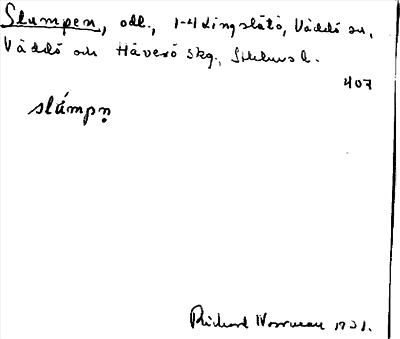 Slumpen, odl., 1-4 Lingslätö, Väddö sn,
Väddö och Häverö skg., Sthlms l.
407
slámpn̥
Richard 1931.